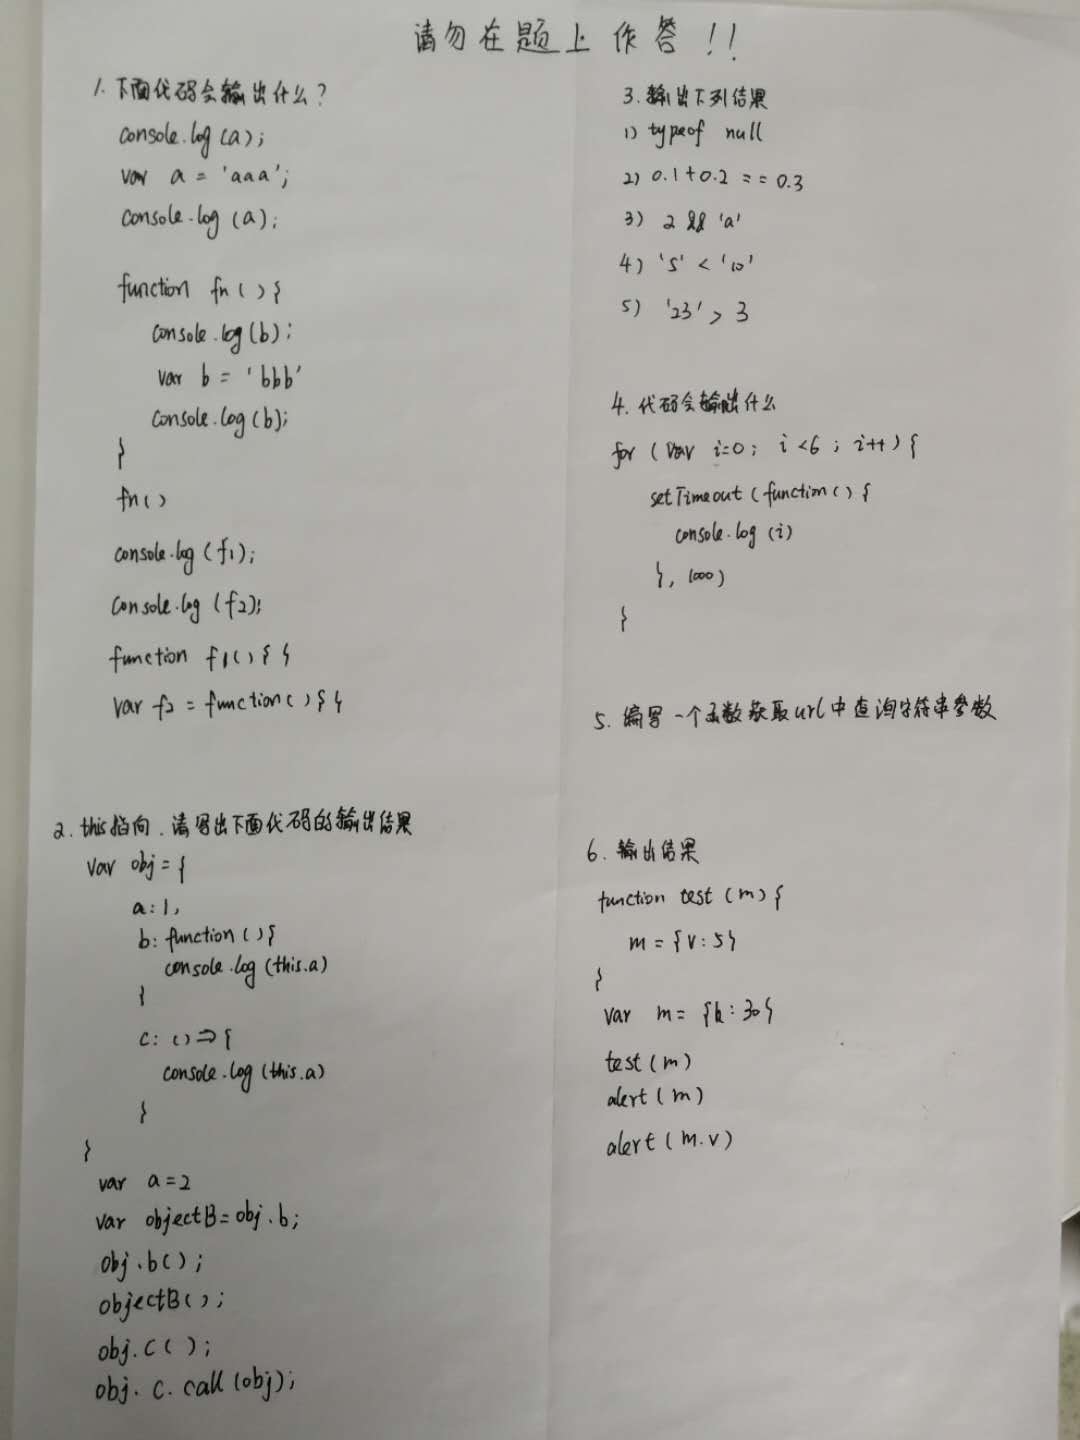 请勿在题上作答!!
1. 下面代码会输出什么?
console.log(a);
var a = 'aaa';
console.log(a);
function fn(){
console.log(b);
var b = 'bbb'
console.log(b);
}
fn()
console.log(f1);
console.log(f2);
function f1(){}
var f2 = function(){}
2. this指向. 请写出下面代码的输出结果
var obj = {
a:1,
b: function(){
console.log(this.a)
}
c: ()=>{
console.log(this.a)
}
}
var a=2
var objectB=obj.b;
obj.b();
objectB();
obj.c();
obj.c.call(obj);
3. 输出下列结果
1) typeof null
2) 0.1+0.2 == 0.3
3) 2 && 'a'
4) '5' < '10'
5) '23' > 3
4. 代码会输出什么
for (var i=0; i<6; i++){
setTimeout(function(){
console.log(i)
}, 1000)
}
5. 编写一个函数获取url中查询字符串参数
6. 输出结果
function test(m){
m = {v:5}
}
var m = {k:30}
test(m)
alert(m)
alert(m.v)